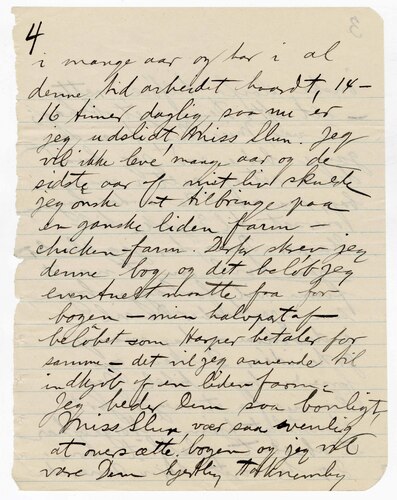 4
i mange aar og har i al
denne tid arbeidet haardt, 14-
16 timer daglig, saa nu er
jeg udslidt Miss Ulun. Jeg
vil ikke leve mange aar og de
sidste aar af mit liv skulde
jeg ønske at tilbringe paa
en ganske liden farm -
chicken-farm. Derfor skrev jeg
denne bog og det beløb jeg
eventuelt motte fra for
bogen - min halvpart af
beløbet som Harper betaler for
samme - det vil jeg anvende til
indkjøb af en liden farm.
Jeg beder Dem saa bønligt,
Miss vær saa venlig
at oversætte bogen og jeg vil
være Dem hjertlig taknemlig